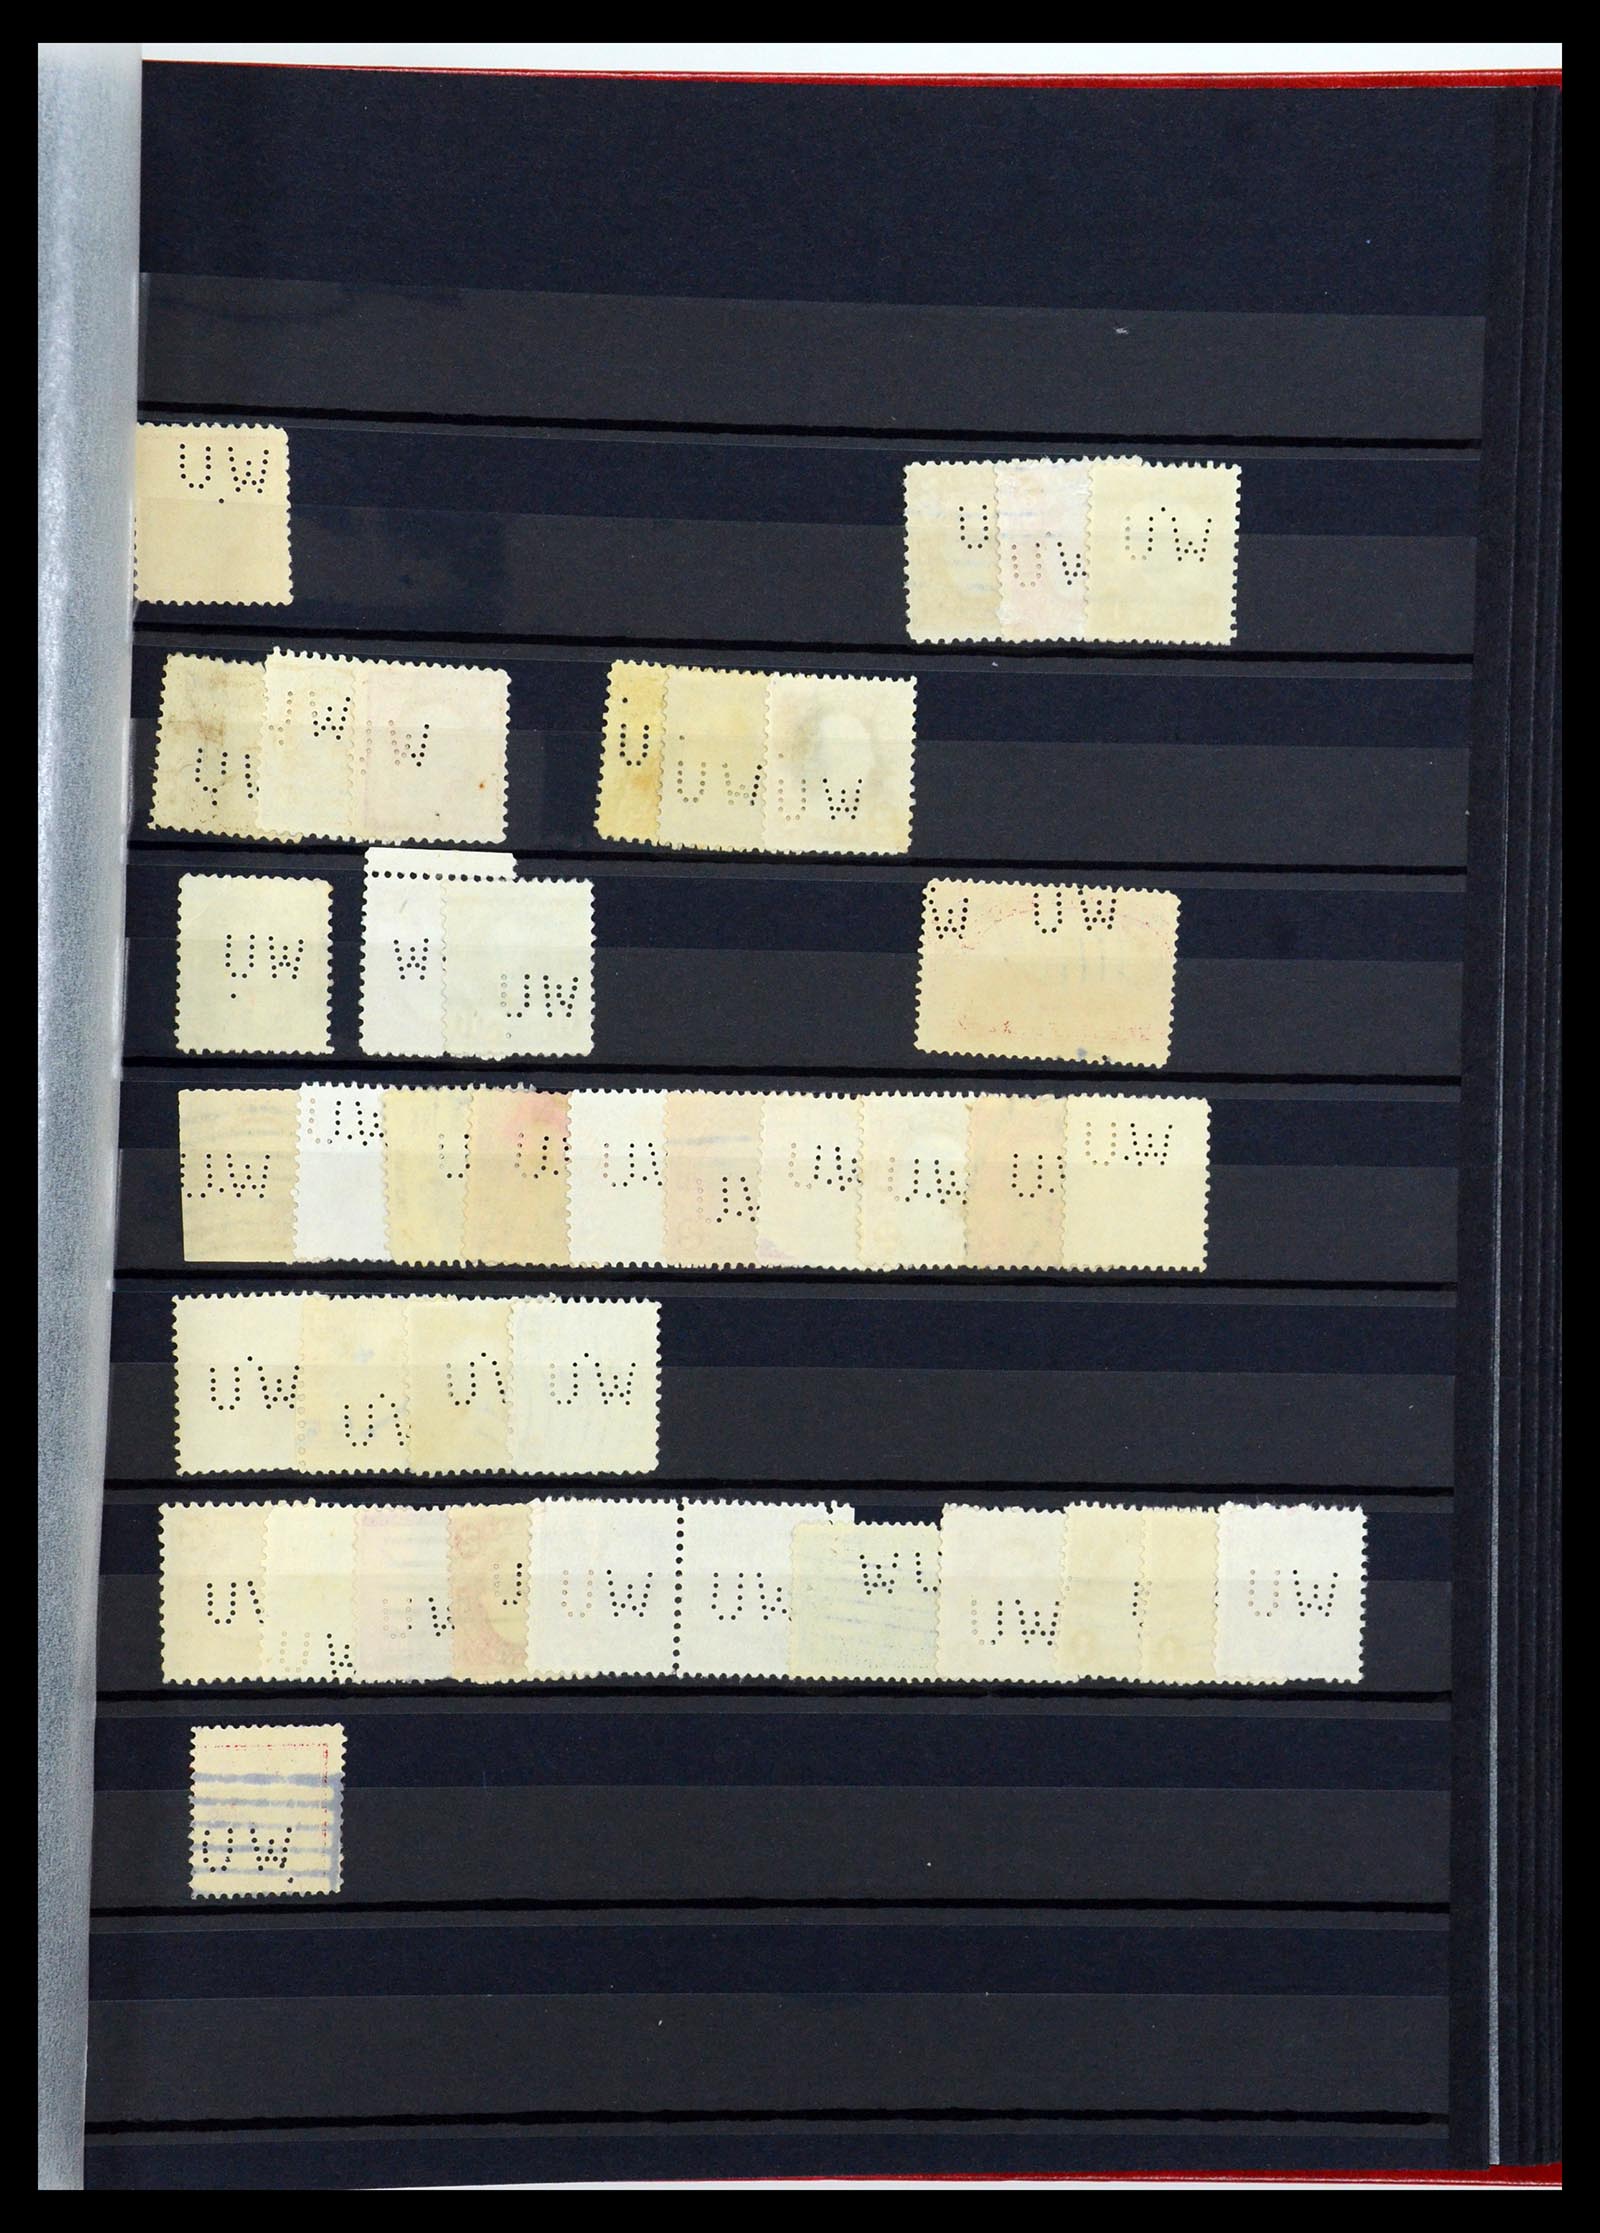 UW
U UW UW
U W UW U UW UW
UW W UW W UW
UW UW U U U U UW UW U UW
UW U U UW
U UW UW U UW UW W UW UW
UW